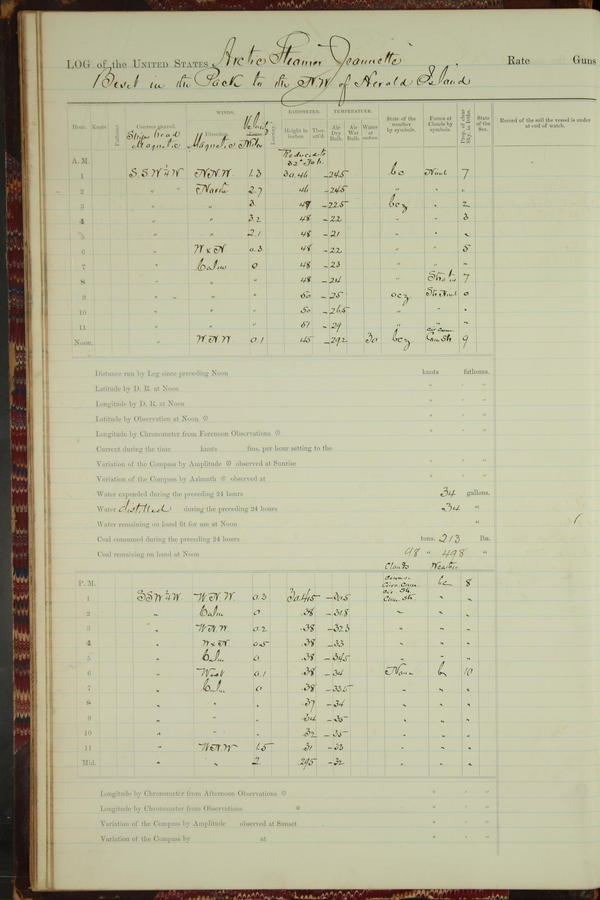 LOG of the UNITED STATES Arctic Steamer Jeannette Rate Guns
Beset in the Pack to the N.W. of Herald Island
WINDS. BAROMETER. TEMPERATURE.
Hour. Knots. Fathoms. Courses steered. Direction. Velocity Leeway. Height in inches Ther. att'd. Air Dry Bulb. Air Wet Bulb. Water at surface. State of the weather by symbols. Forms of Clouds by symbols. Prop. of clear Sky, in 10ths. State of the Sea. Record of the soil the vessel is under at end of watch.
Ships head Magnetic Magnetic Miles
Reduced to 32° Fah.
A. M.
1 SSW¼W N.N.W. 1.3 30.46 -24.5 bc Nimb 7
2 " " North 2.7 46 -24.5 " " "
3 " " 3. 48 -22.5 bcz " 2
4 " " 3.2 48 -22 " " 3
5 " " 2.1 48 -21 " " "
6 " W x N. 0.3 48 -22 " " 5
7 " Calm 0 48 -23 " " "
8 " " " 48 -24 " Stratus 7
9 " " " " 50 -25 ocz 0
10 " " " 50 -26.5 " " "
11 " " " 51 -29 " "
Noon. " W.N.W. 0.1 45 -29.2 30 bcz 9
Distance run by Log since preceding Noon knots fathoms.
Latitude by D. R. at Noon ° ' "
Longitude by D. R. at Noon ° ' "
Latitude by Observation at Noon ☉ ° ' "
Longitude by Chronometer from Forenoon Observations ☉ ° ' "
Current during the time knots fms. per hour setting to the
Variation of the Compass by Amplitude ☉ observed at Sunrise ° ' "
Variation of the Compass by Azimuth ☉ observed at ° ' "
Water expended during the preceding 24 hours 34 gallons.
Water distilled during the preceding 24 hours 34 "
Water remaining on hand fit for use at Noon "
Coal consumed during the preceding 24 hours tons. 213 lbs.
Coal remaining on hand at Noon 98 " 498 "
Clouds Weather
P. M.
1 SSW¼W W.N.W. 0.3 30.45 -30.5 bc 8
2 " Calm 0 .38 -31.8 " " "
3 " W.N.W. 0.2 .38 -32.3 " " "
4 " W x N. 0.5 .38 -33 " " "
5 " Calm 0 .38 -34.5 " " "
6 " West 0.1 .38 -34 None b 10
7 " Calm 0 .38 -33.5 " " "
8 " " " 37 -34 " " "
9 " " " 34 -35 " " "
10 " " " 32 -35 " " "
11 " W.N.W. 1.5 31 -33 " " "
Mid. " " 2 29.5 -32 " " "
Longitude by Chronometer from Afternoon Observations ☉ ° ' "
Longitude by Chronometer from Observations * ° ' "
Variation of the Compass by Amplitude observed at Sunset ° ' "
Variation of the Compass by at ° ' "